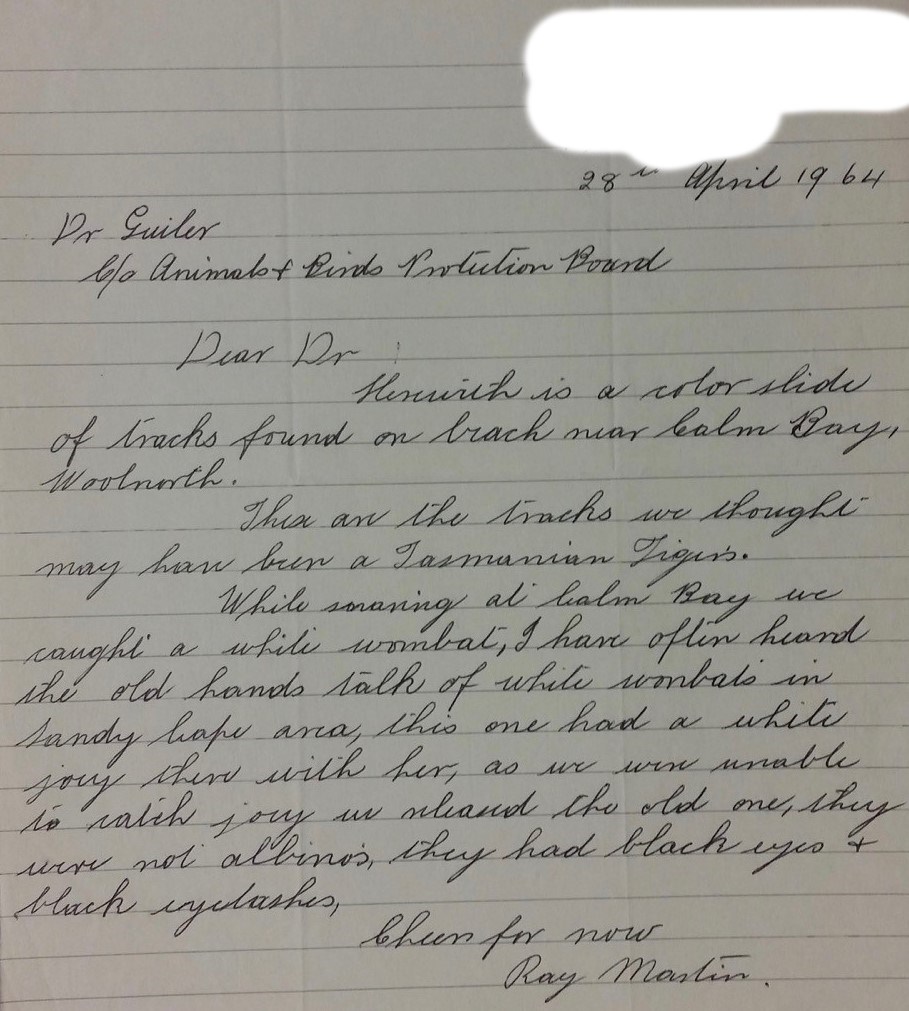 28th April 1964
Dr Guiler
C/o Animals & Birds Protection Board
Dear Dr
Herewith is a color slide
of tracks found on beach near Calm Bay,
Woolnorth.
These are the tracks we thought
may have been a Tasmanian Tigers.
While snaring at Calm Bay we
caught a white wombat, I have often heard
the old hands talk of white wombats in
Sandy Cape area, this one had a white
joey there with her, as we were unable
to catch joey we released the old one, they
were not albino's, they had black eyes &
black eyelashes,
Cheers for now
Ray Martin.